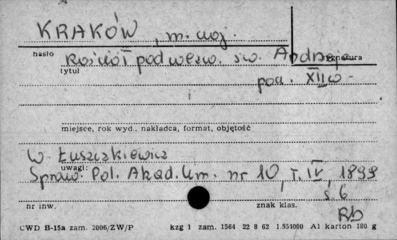 KRAKÓW, m. woj.
hasło Kościół pod wezw. św. Andrzeja
tytuł
poł. XII w.
miejsce, rok wyd., nakładca, format, objętość
W. Łuszczkiewicz
uwagi
Spraw. Pol. Akad. Um. nr 10, T. IV, 1899
s. 6
nr inw. znak klas.
Rb
CWD B-15a zam. 2006/ZW/P kzg 1 zam. 1564 22 8 62 1.554000 A1 karton 180 g